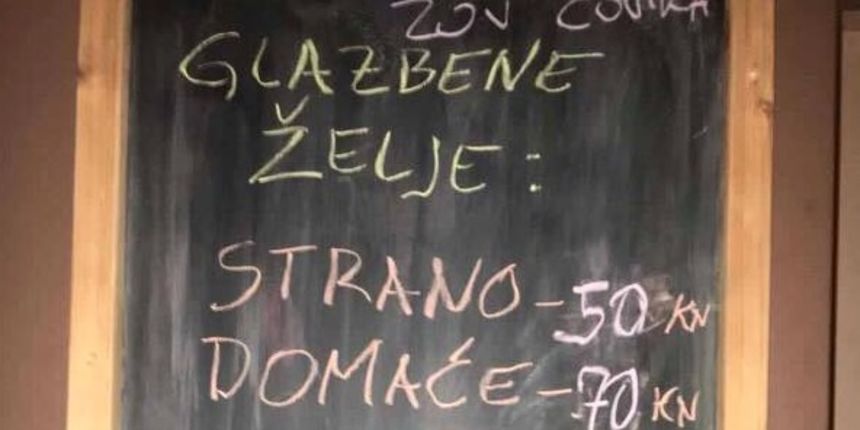 GLAZBENE
ŽELJE:
STRANO - 50 KN
DOMAĆE - 70 KN